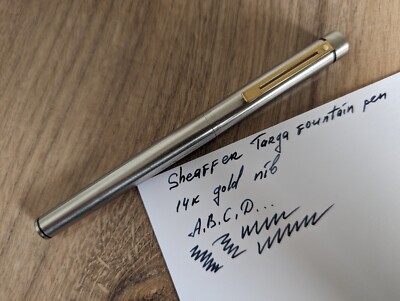 Sheaffer Targa fountain pen
14K gold nib
A.B.C.D...